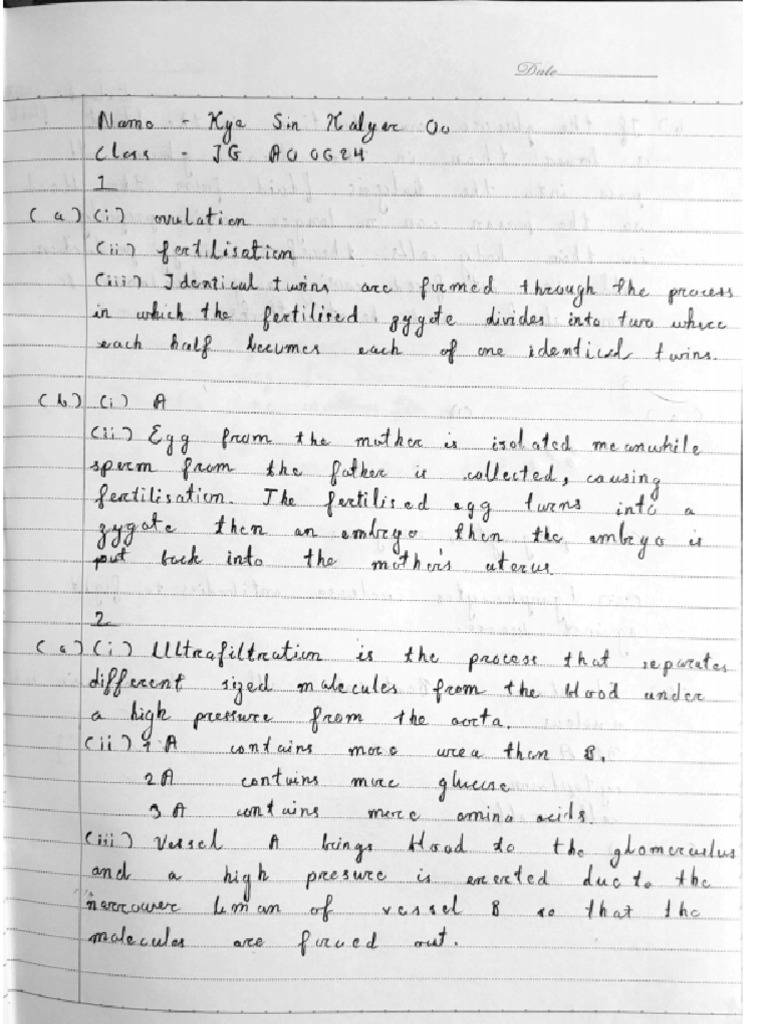 Date
Name - Kya Sin Halyar Oo
Class - IG A0 0624
1
(a) (i) ovulation
(ii) fertilisation
(iii) Identical twins are formed through the process
in which the fertilised zygate divides into two where
each half becomes each of one identical twins.
(b) (i) A
(ii) Egg from the mother is isolated meanwhile
sperm from the father is collected, causing
fertilisation. The fertilised egg turns into a
zygate then an embryo then the embryo is
put back into the mother's uterus
2
(a) (i) Ultrafiltration is the process that separates
different sized molecules from the blood under
a high pressure from the aorta.
(ii) 1 A contains more urea than B.
2 A contains more glucose
3 A contains more amino acids.
(iii) Vessel A brings blood to the glomerulus
and a high presure is exerted due to the
narrower lman of vessel B so that the
molecules are forced out.